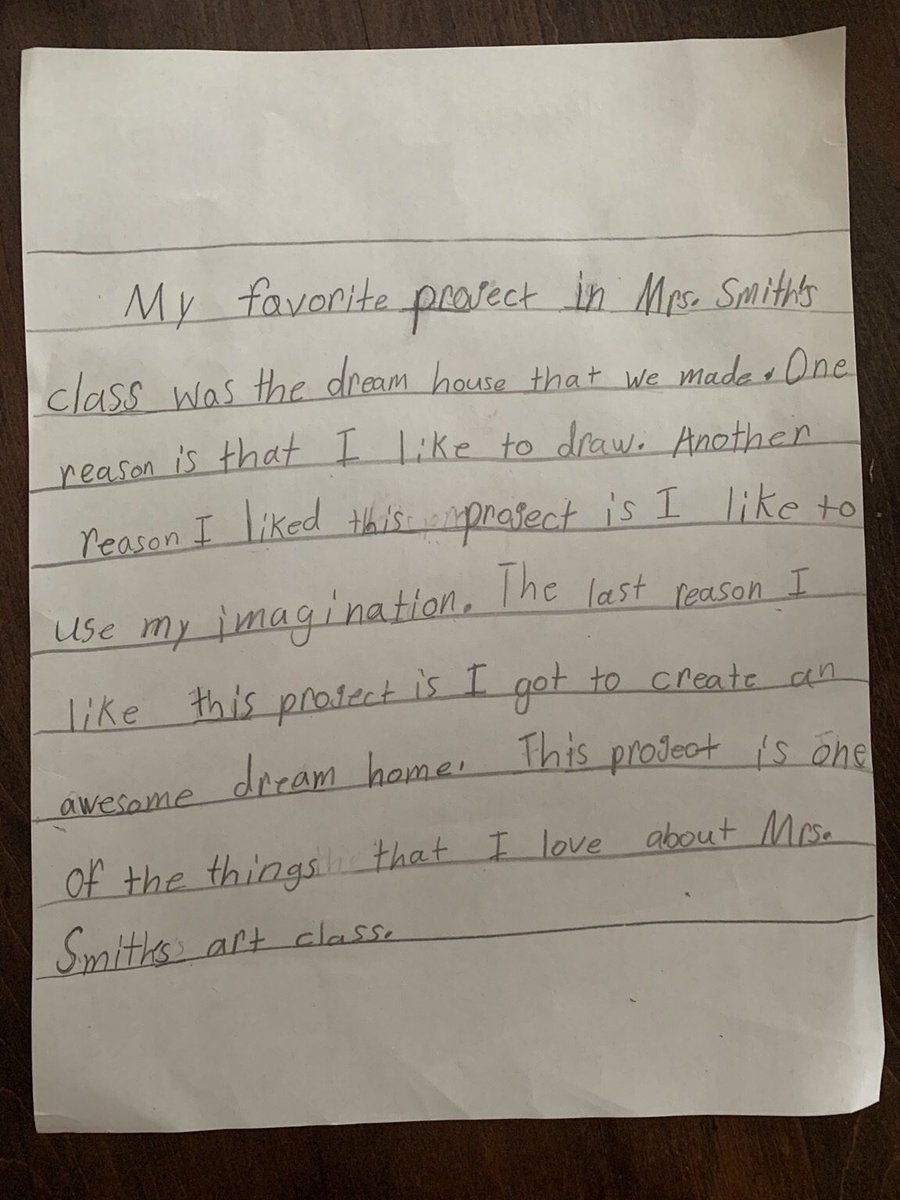 My favorite project in Mrs. Smith's
class was the dream house that we made. One
reason is that I like to draw. Another
reason I liked this project is I like to
use my imagination. The last reason I
like this project is I got to create an
awesome dream home. This project is one
of the things that I love about Mrs.
Smith's art class.